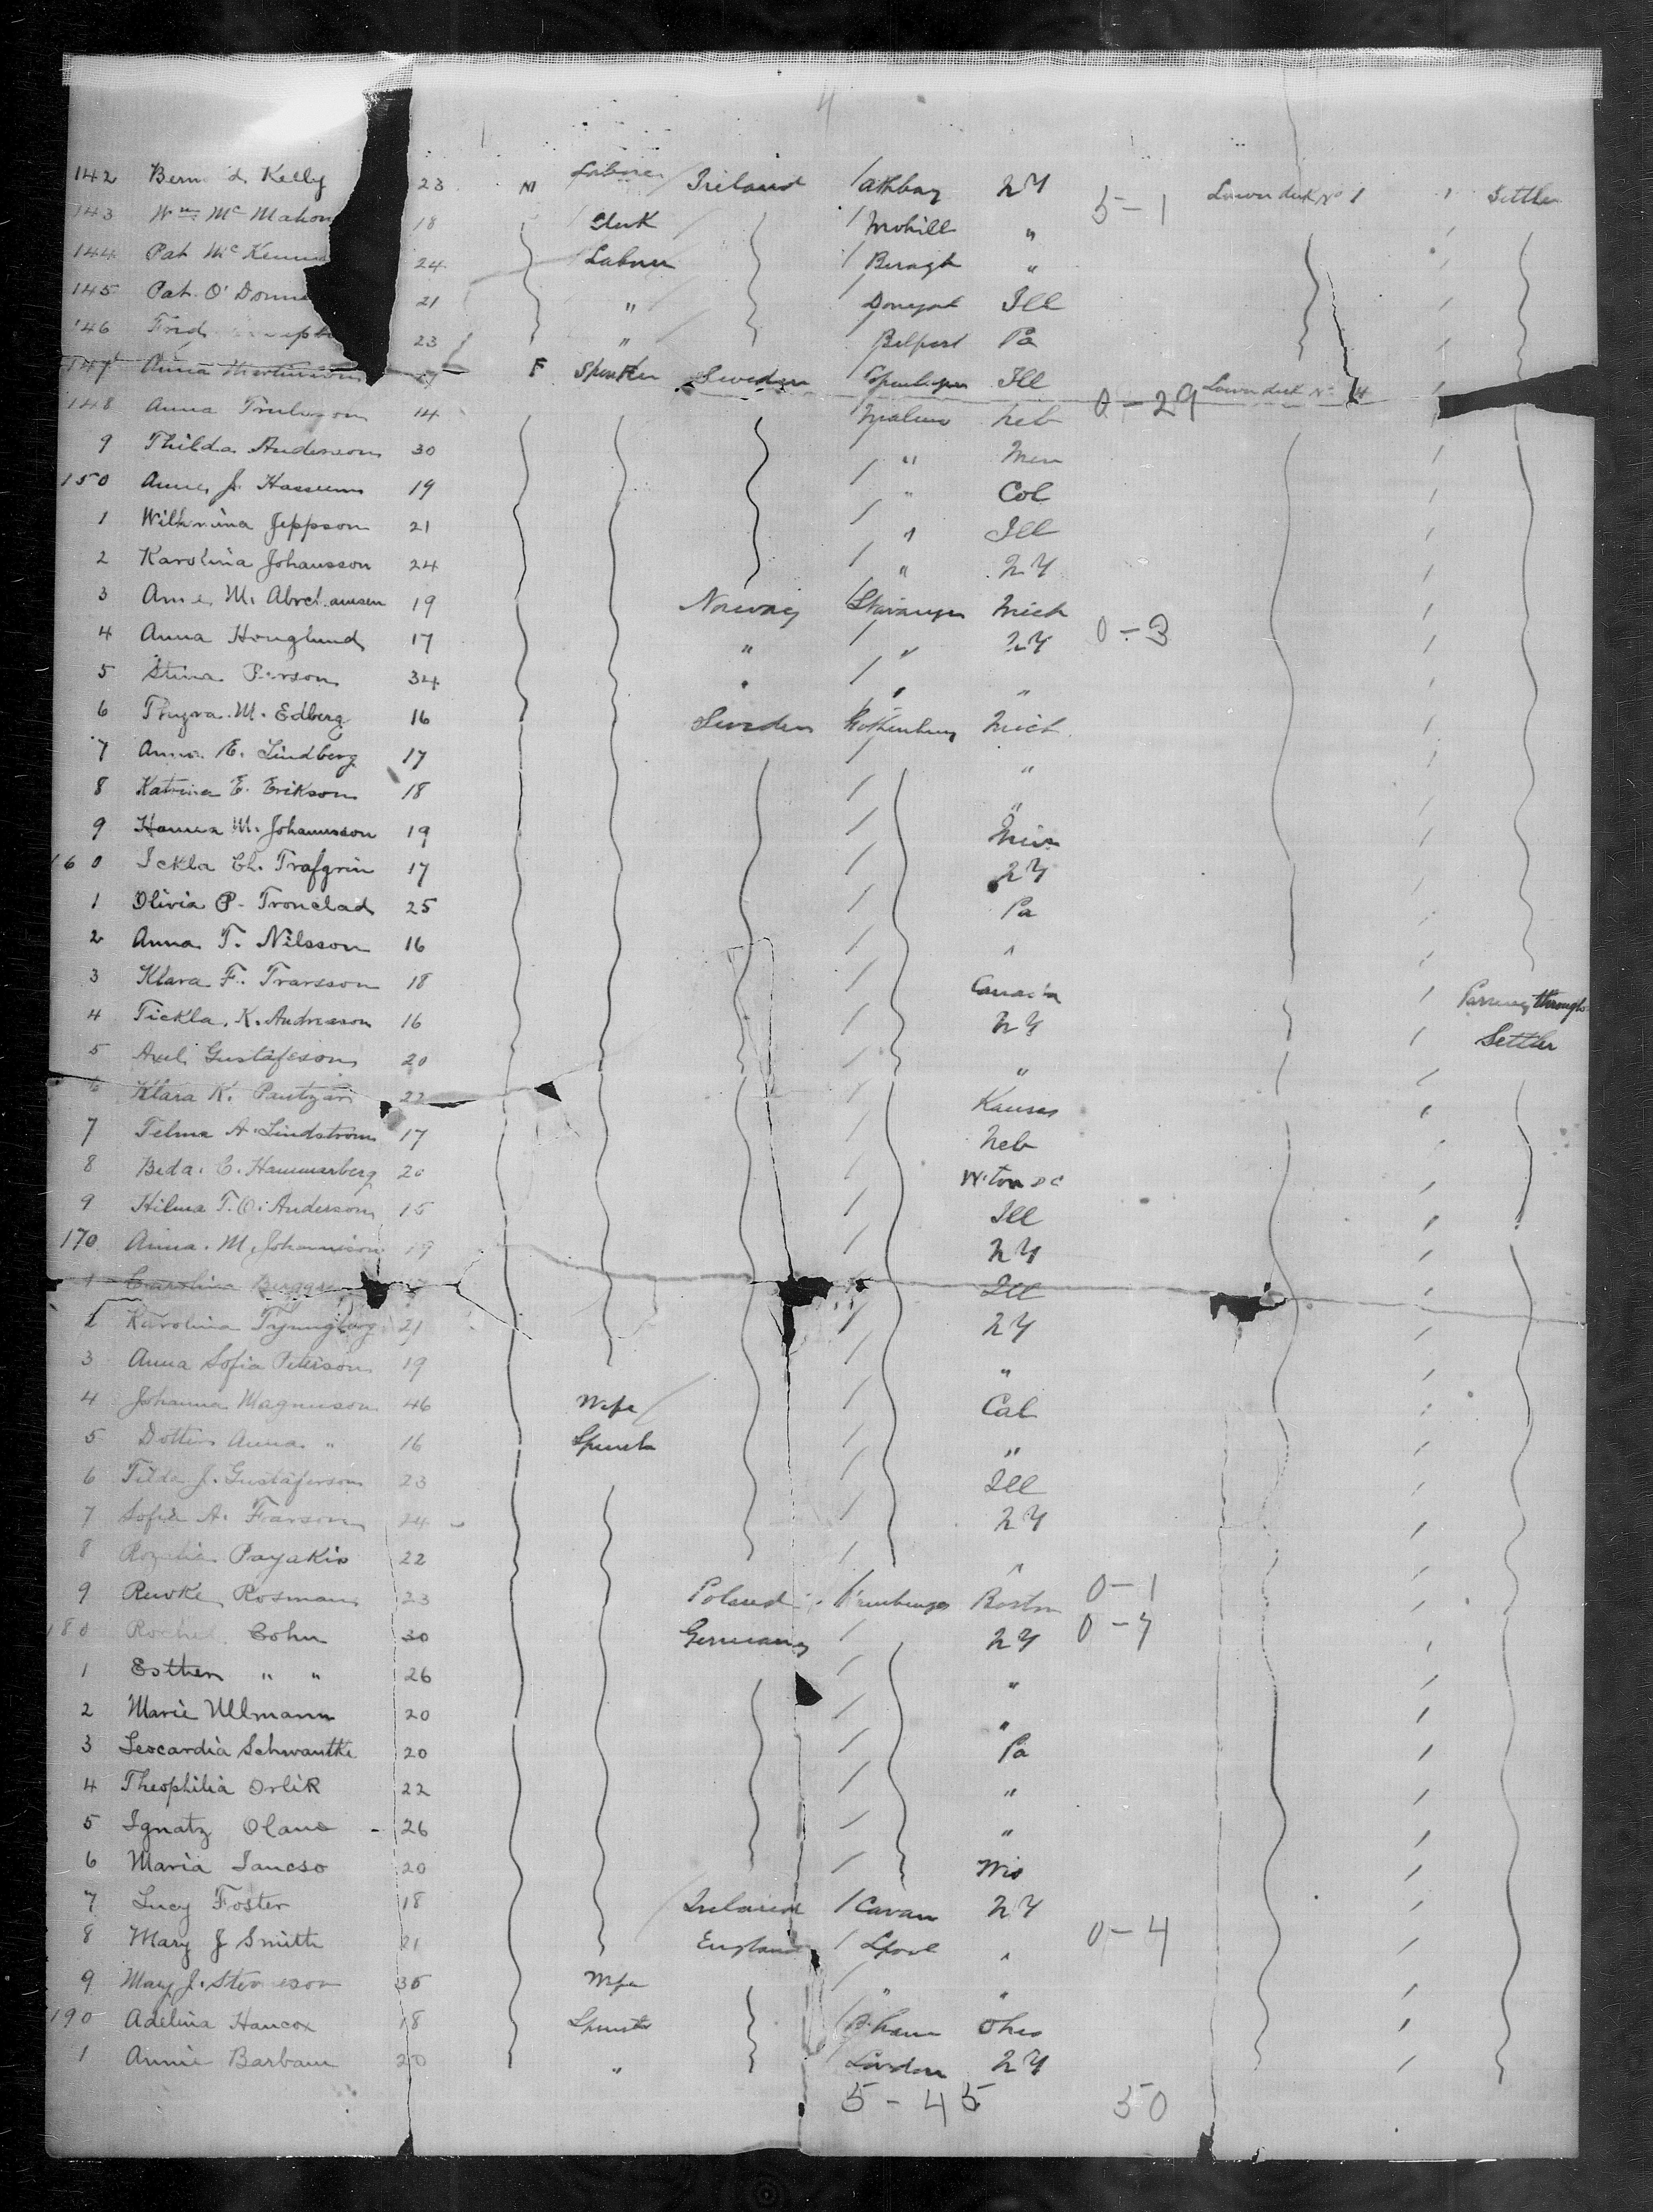 142 Bern d. Kelly 23 M Laborer Ireland / Athboy NY 5-1 Lower deck No 1 Settler
143 Wm Mc Mahon 18 Clerk / Mohill "
144 Pat Mc Kenna 24 Labour / Beragh "
145 Pat O'Donne 21 " Donegal Ill
146 Fred 23 " Belfast Pa
147 Anna Martinson F Spinster Sweden Copenhagen Ill 0-29 Lower deck No 4
148 Anna Trulsson 14 Malmo Neb
9 Thilda Anderson 30 " Min
150 Anne J. 19 " Col
1 Wilhmina Jeppson 21 " Ill
2 Karolina Johansson 24 " NY
3 Ane M. Abrahamsen 19 Norway / Stavanger Mich 0-3
4 Anna Houglund 17 " " NY
5 Stina Person 34 " " "
6 Thyra M. Edberg 16 Sweden Gothenburg Mich
7 Anna E. Lindberg 17 "
8 Katrina E. Erikson 18 "
9 Hanna M. Johannsson 19 Min
160 Ickla Ch. Trafgrin 17 NY
1 Olivia P. Tronclad 25 Pa
2 Anna T. Nilsson 16 "
3 Klara F. Trarsson 18 Canada Passing through
4 Tickla K. Andreason 16 NY Settler
5 Axel Gustafsson 20 "
6 Klara K. Pantzar 22 Kansas
7 Telma A. Lindstrom 17 Neb
8 Beda C. Hammarberg 20 W.ton DC
9 Hilma T. O. Anderson 15 Ill
170 Anna M. Johannson 19 NY
1 Carolina Ill
2 Karolina 21 NY
3 Anna Sofia Peterson 19 "
4 Johanna Magnuson 46 Wife Cal
5 Dotter Anna " 16 Spinster "
6 Tilda J. Gustaferson 23 Ill
7 Sofia A. Frarson 24 NY
8 Rozalia Payakis 22 "
9 Rewke Rosman 23 Poland Boston 0-1
180 Rochel Cohn 30 Germany NY 0-7
1 Esther " " 26 "
2 Marie Ullmann 20 "
3 Leocardia Schwantke 20 Pa
4 Theophilia Orlik 22 "
5 Ignatz Olans - 26 "
6 Maria Jancso 20 Wis
7 Lucy Foster 18 / Ireland / Cavan NY
8 Mary J Smith 21 England / Lpool " 0-4
9 Mary J. Stevenson 35 Wife " "
190 Adelina Hancox 18 Spinster / B.ham Ohio
1 Annie Barbam 20 " London NY
5-45 50